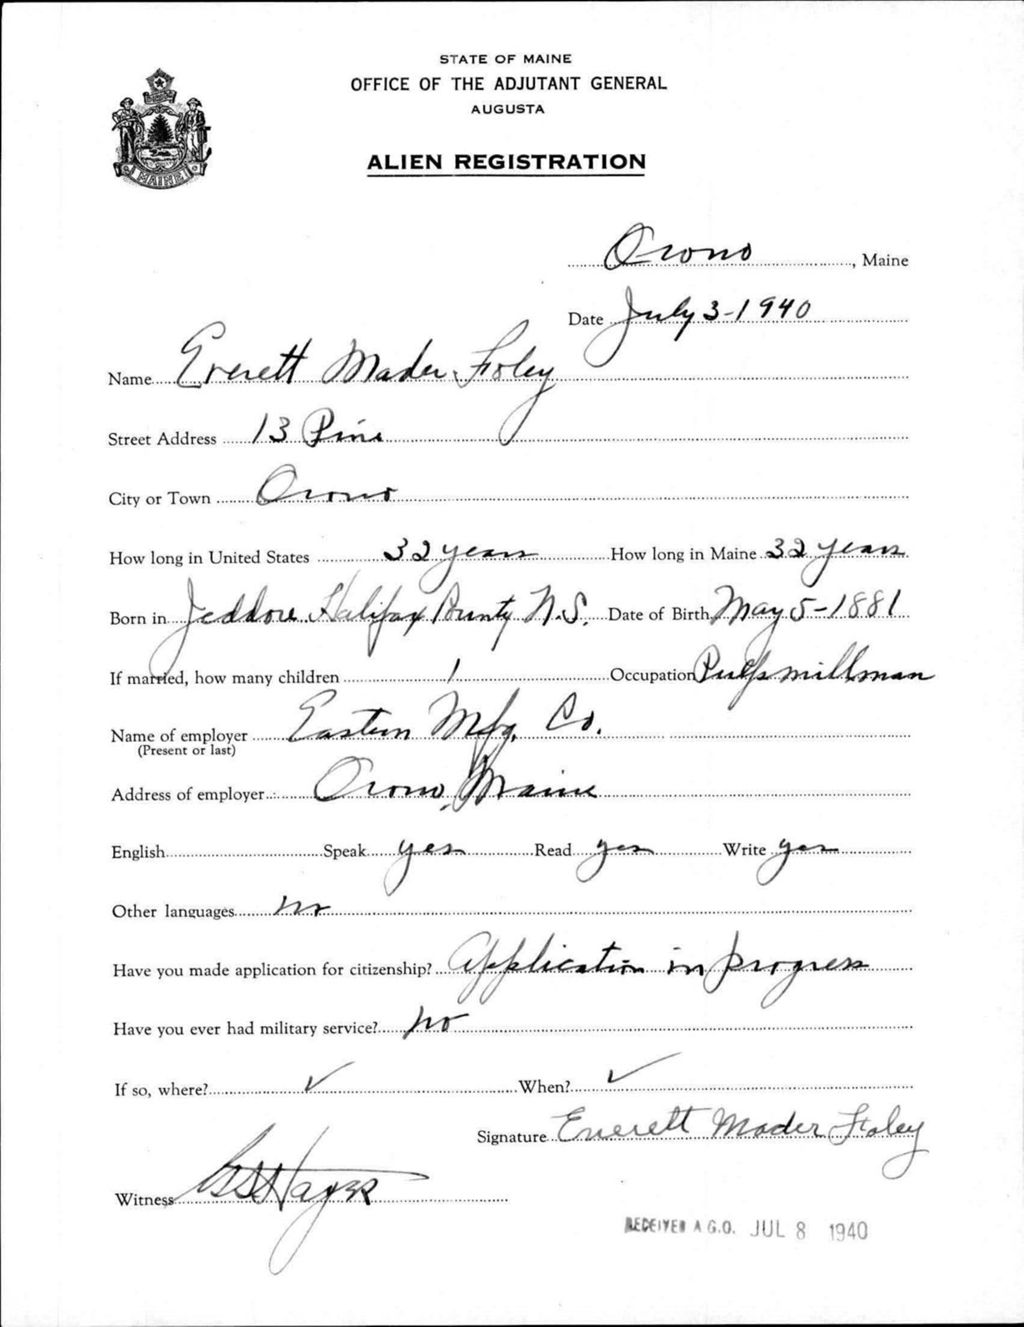 STATE OF MAINE
OFFICE OF THE ADJUTANT GENERAL
AUGUSTA
ALIEN REGISTRATION
MAINE
Orono, Maine
Date July 3-1940
Name Everett Mader Foley
Street Address 13 Pine
City or Town Orono
How long in United States 32 years How long in Maine 32 years
Born in Jeddore Halifax County N.S. Date of Birth May 5-1881
If married, how many children 1 Occupation Pulp millman
Name of employer Eastern Mfg. Co.
(Present or last)
Address of employer Orono, Maine
English Speak yes Read yes Write yes
Other languages no
Have you made application for citizenship? Application in progress
Have you ever had military service? no
If so, where? ✓ When? ✓
Signature Everett Mader Foley
Witness Hayes
RECEIVED A.G.O. JUL 8 1940